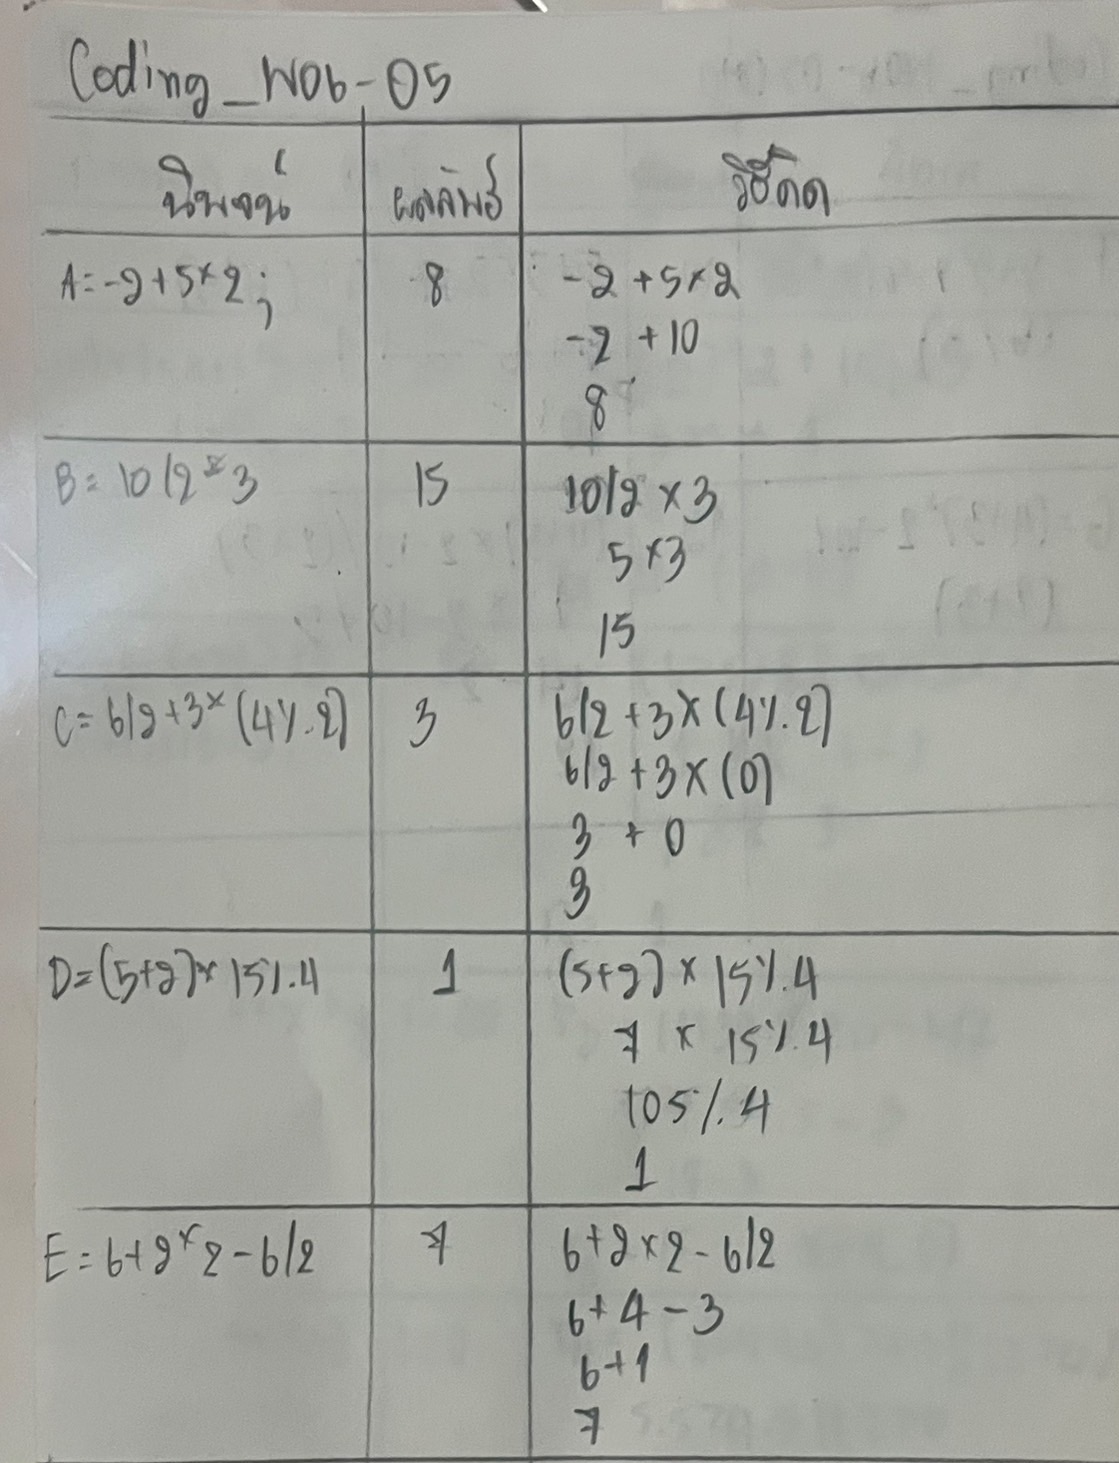 Coding_W06-05
นิพจน์ ผลลัพธ์ วิธีคิด
A=-2+5×2; 8 -2+5×2
-2 +10
8
B= 10/2×3 15 10/2 ×3
5×3
15
C= 6/2+3×(4%2) 3 6/2+3×(4%2)
6/2+3×(0)
3 + 0
3
D=(5+2)×15%4 1 (5+2)×15%4
7 × 15%4
105%4
1
E=6+2×2-6/2 7 6+2×2-6/2
6+4-3
6+1
7